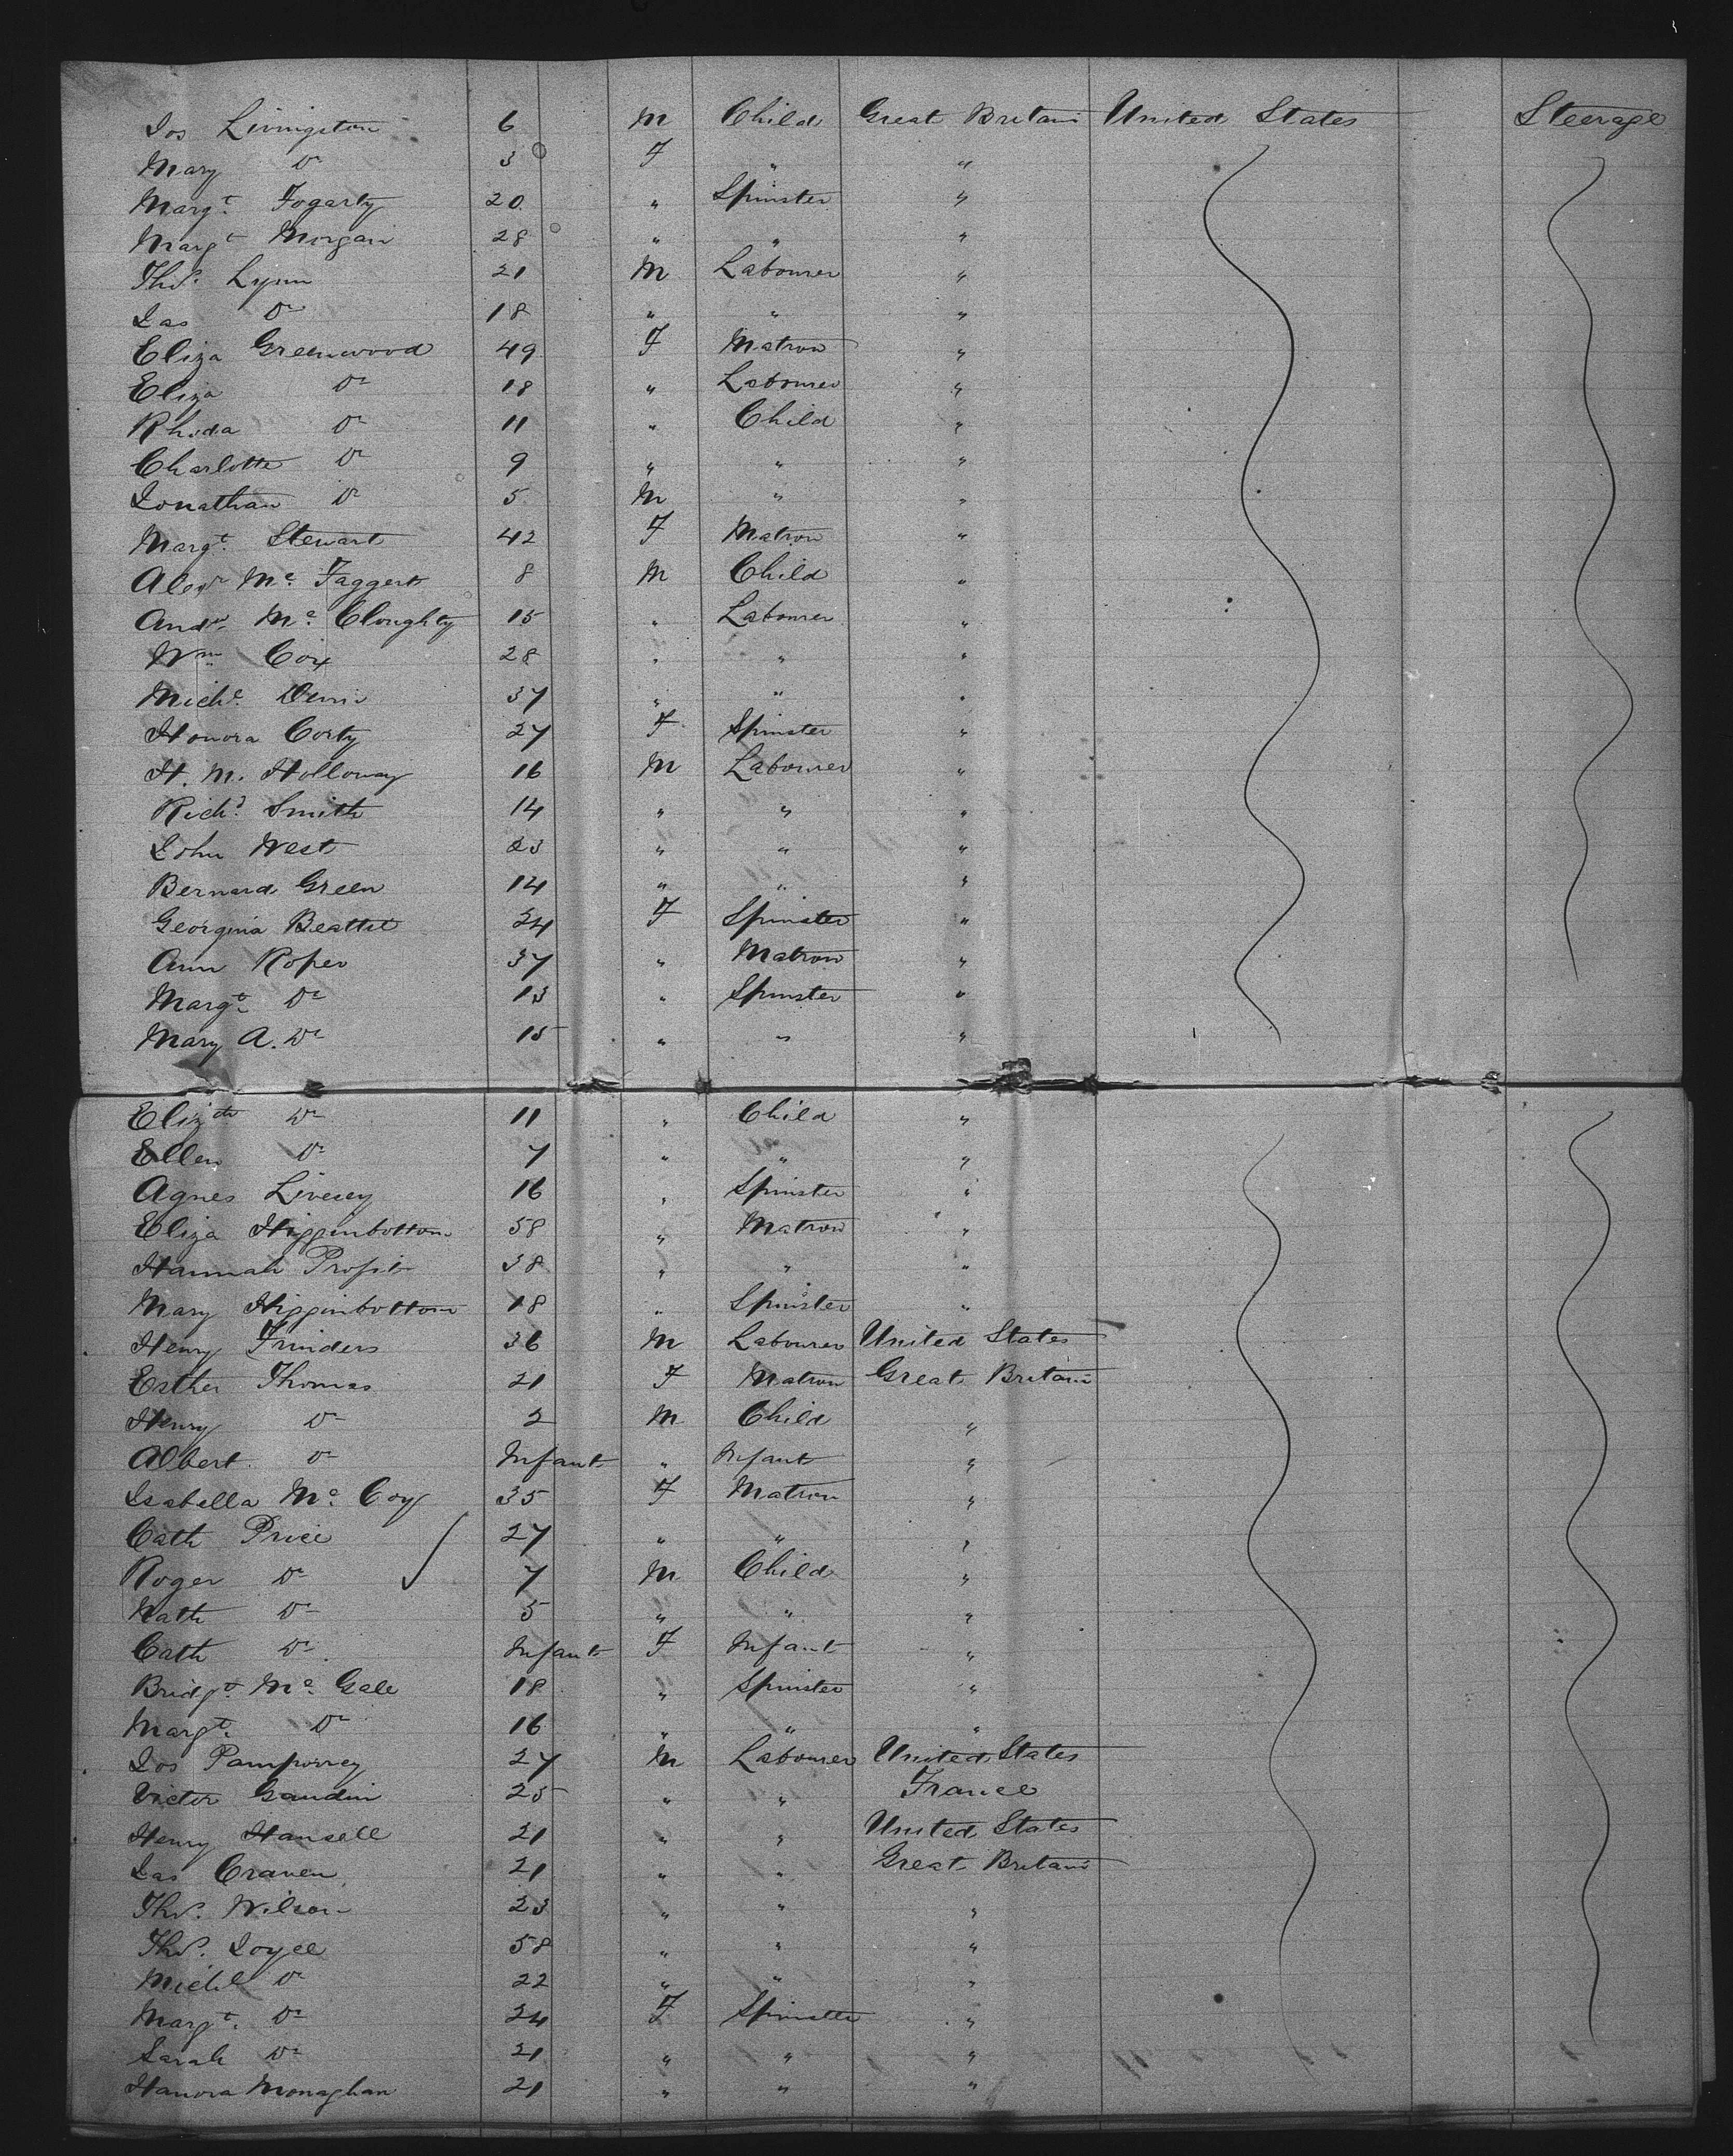 Jos Livingston 6 M Child Great Britain United States Steerage
Mary Do 3 F " "
Margt. Fogarty 20 " Spinster "
Margt Morgan 28 " " "
Thos. Lynn 21 M Labourer "
Jas Do 18 " " "
Eliza Greenwood 49 F Matron "
Eliza Do 18 " Labourer "
Rhoda Do 11 " Child "
Charlotte Do 9 " " "
Jonathan Do 5 M " "
Margt. Stewart 42 F Matron "
Alexr Mc. Taggert 8 M Child "
Andw. Mc. Cloughty 15 " Labourer "
Wm Cox 28 " " "
Michl. 37 " " "
Honora Corty 27 F Spinster "
H. M. Holloway 16 M Labourer "
Richd. Smith 14 " " "
John West 23 " " "
Bernard Green 14 " " "
Georgina Beattie 24 F Spinster "
Ann Roper 37 " Matron "
Margt. Do 13 " Spinster "
Mary A. Do 15 " " "
Elizth Do 11 " Child "
Ellen Do 7 " " "
Agnes Livesey 16 " Spinster "
Eliza Higginbottom 58 " Matron "
Hannah Profit 38 " " "
Mary Higginbottom 18 " Spinster "
Henry Trinders 36 M Labourer United States
Esther Thomas 21 F Matron Great Britain
Henry Do 2 M Child "
Albert Do Infant " Infant "
Isabella Mc. Coy 35 F Matron "
Cath Price 27 " " "
Roger Do 7 M Child "
Nath Do 5 " " "
Cath Do Infant F Infant "
Bridgt. Mc. Gale 18 " Spinster "
Margt. Do 16 " " "
Jos 27 M Labourer United States
Victor Gaudin 25 " " France
Henry Hansell 21 " " United States
Jas Craven 21 " " Great Britain
Thos. Wilson 23 " " "
Thos. Joyce 58 " " "
Michl Do 22 " " "
Margt. Do 24 F Spinster "
Sarah Do 21 " " "
Hanora Monaghan 21 " " "